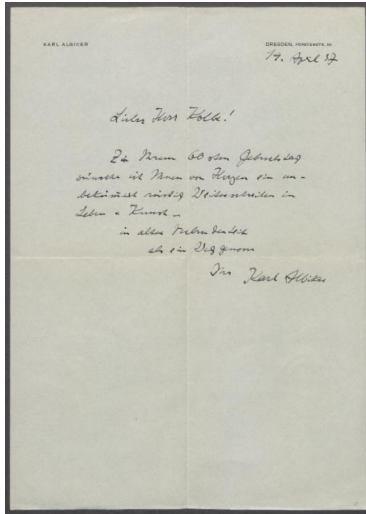 KARL ALBIKER
DRESDEN,
14. April 37
Lieber Herr Kolbe!
Zu Ihrem 60sten Geburtstag
wünsche ich Ihnen von Herzen ein un-
bekümmert rüstig Weiterschreiten in
Leben u Kunst –
in alter Verbundenheit
als ein Weggenosse
Ihr Karl Albiker